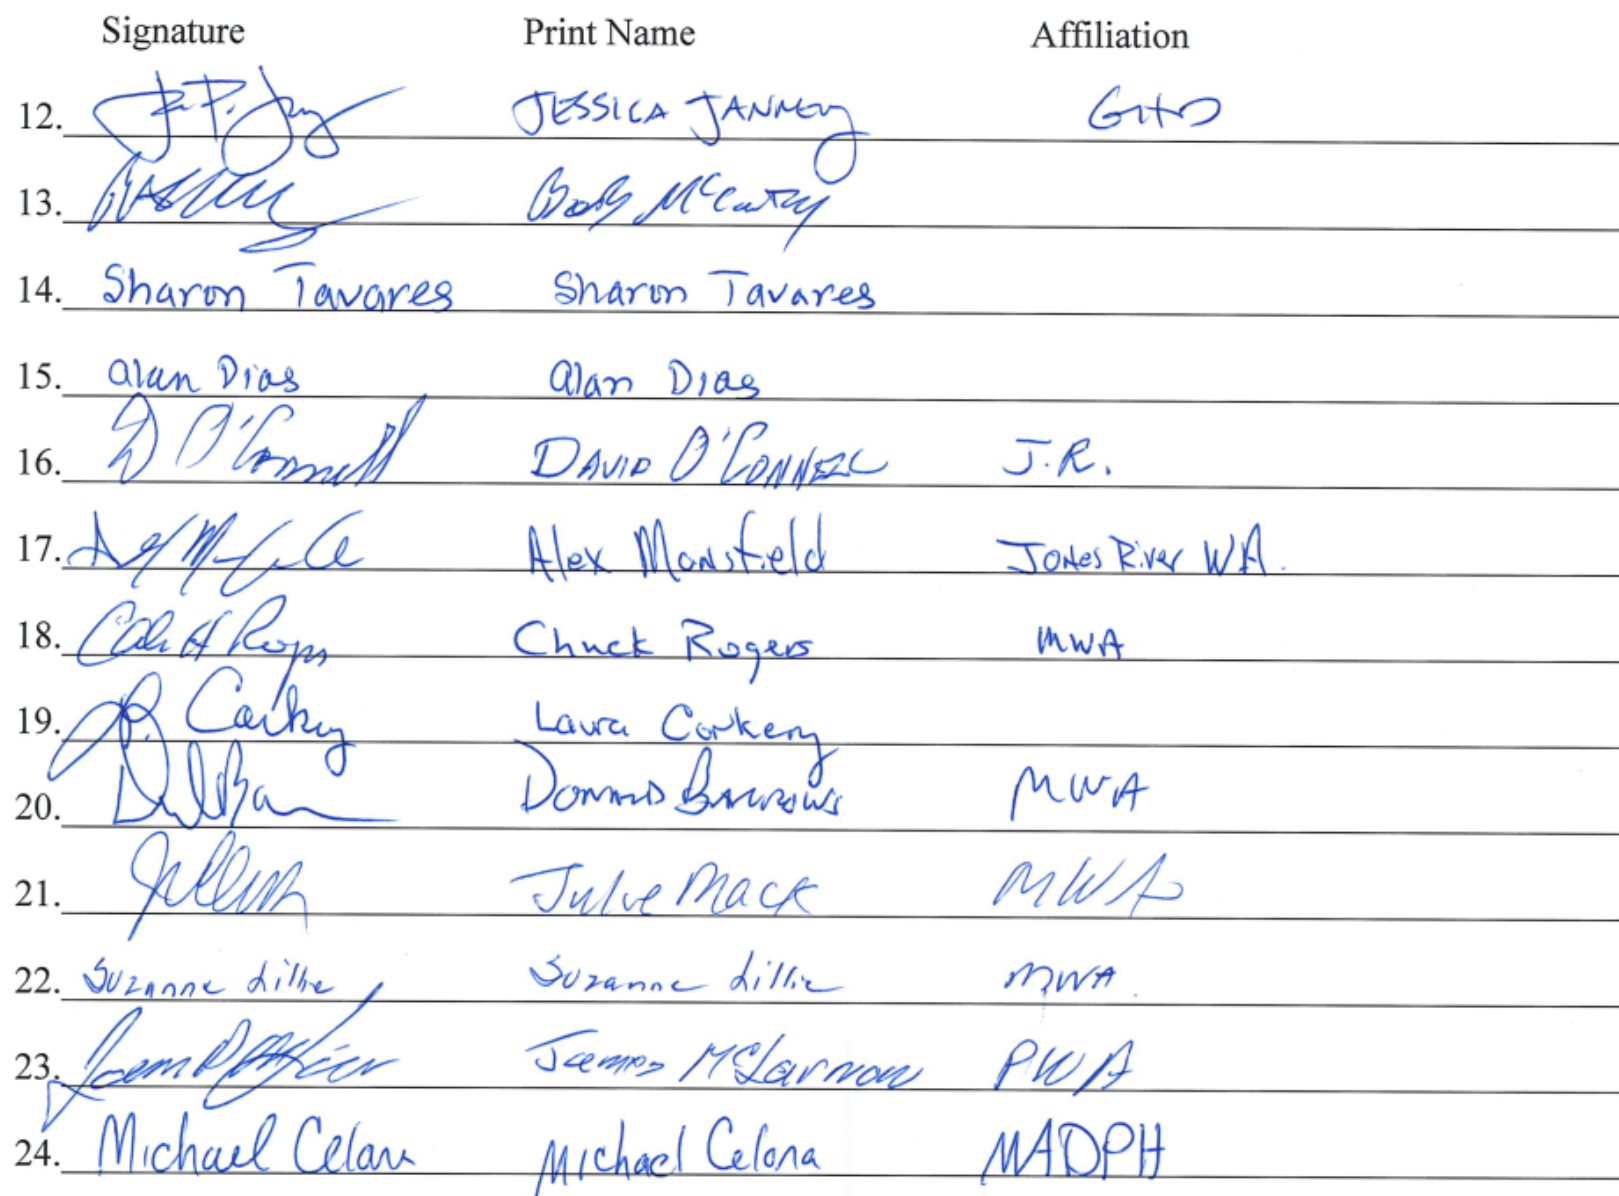 Signature Print Name Affiliation
12. JESSICA JANNEY GHD
13. McCarthy
14. Sharon Tavares Sharon Tavares
15. alan Dias alan Dias
16. D O'Connell DAVID O'CONNELL J.R.
17. Alex Mansfield Jones River WA.
18. Chuck Rogers MWA
19. Corkery Laura Corkery
20. DONALD BARROWS MWA
21. Julie Mack MWA
22. Suzanne Lillie Suzanne Lillie MWA
23. James McLarnon PWA
24. Michael Celona Michael Celona MADPH